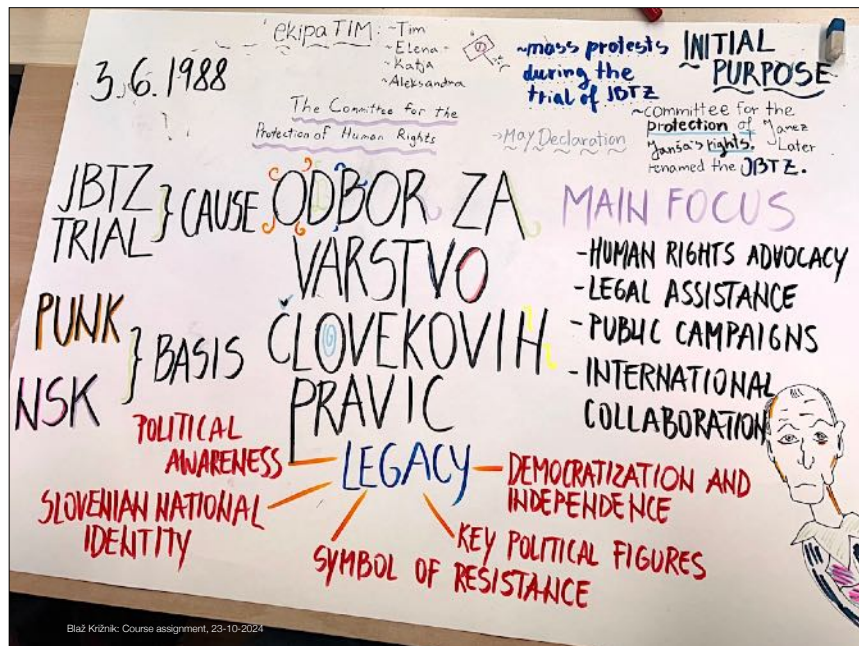 ekipa TIM: ~Tim
~Elena
~Katja
~Aleksandra
3.6.1988
The Committee for the
Protection of Human Rights
~mass protests
during the
trial of JBTZ
INITIAL
PURPOSE
~committee for the
protection of Janez
Janša's rights. Later
renamed the JBTZ.
~May Declaration
JBTZ
TRIAL
CAUSE
ODBOR ZA
VARSTVO
ČLOVEKOVIH
PRAVIC
MAIN FOCUS
-HUMAN RIGHTS ADVOCACY
-LEGAL ASSISTANCE
-PUBLIC CAMPAIGNS
-INTERNATIONAL
COLLABORATION
PUNK
NSK
BASIS
LEGACY
POLITICAL
AWARENESS
SLOVENIAN NATIONAL
IDENTITY
SYMBOL OF RESISTANCE
KEY POLITICAL FIGURES
DEMOCRATIZATION AND
INDEPENDENCE
Blaž Križnik: Course assignment, 23-10-2024